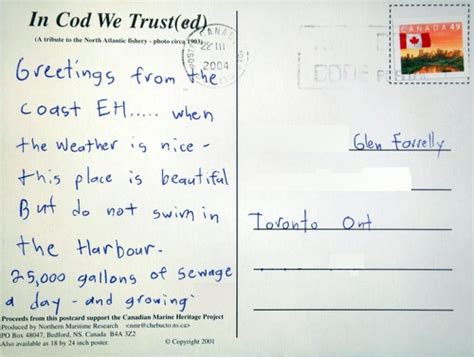 In Cod We Trust(ed)
(A tribute to the North Atlantic fishery - photo circa 1903)
Greetings from the
coast EH..... when
the weather is nice -
this place is beautiful
But do not swim in
the Harbour.
25,000 gallons of sewage
a day - and growing.
Proceeds from this postcard support the Canadian Marine Heritage Project
Produced by Northern Maritime Research <nmr@chebucto.ns.ca>
PO Box 48047, Bedford, NS. Canada B4A 3Z2
Also available as 18 by 24 inch poster.
© Copyright 2001
CANADA
22 III
2004
CODE
CANADA 49
Glen Farrelly
Toronto Ont